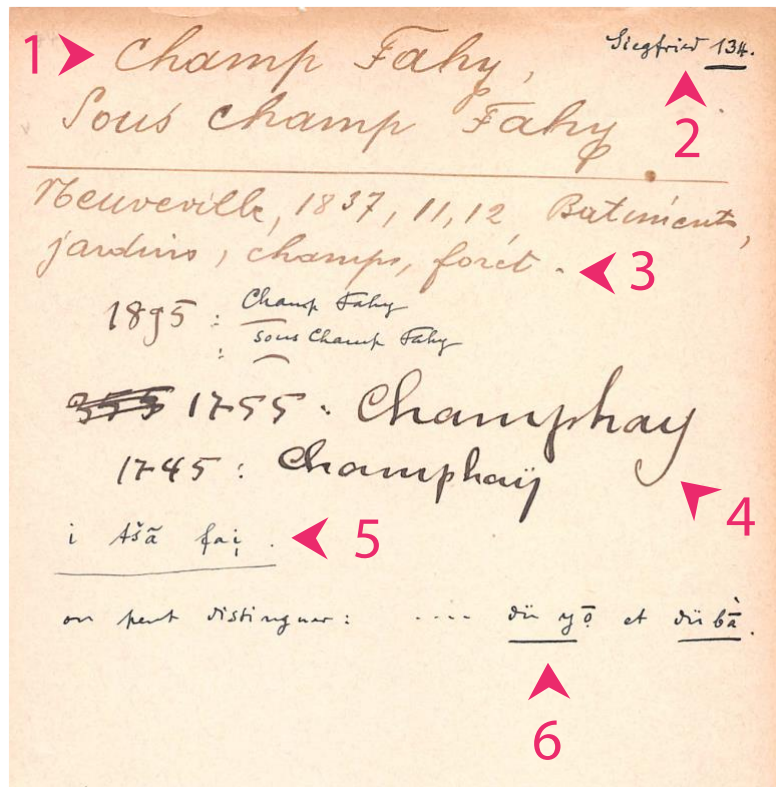 1 Champ Fahy,
Siegfried 134.
2
Sous champ Fahy.
Neuveville, 1837, 11, 12, Batiments,
jardins, champs, forêt. 3
1895 : Champ Fahy
: sous Champ Fahy
1755 : Champhay
1745 : Champhaÿ
4
i tšã fai̯ . 5
on peut distinguer : .... dü yō̩ et dü bà̄.
6